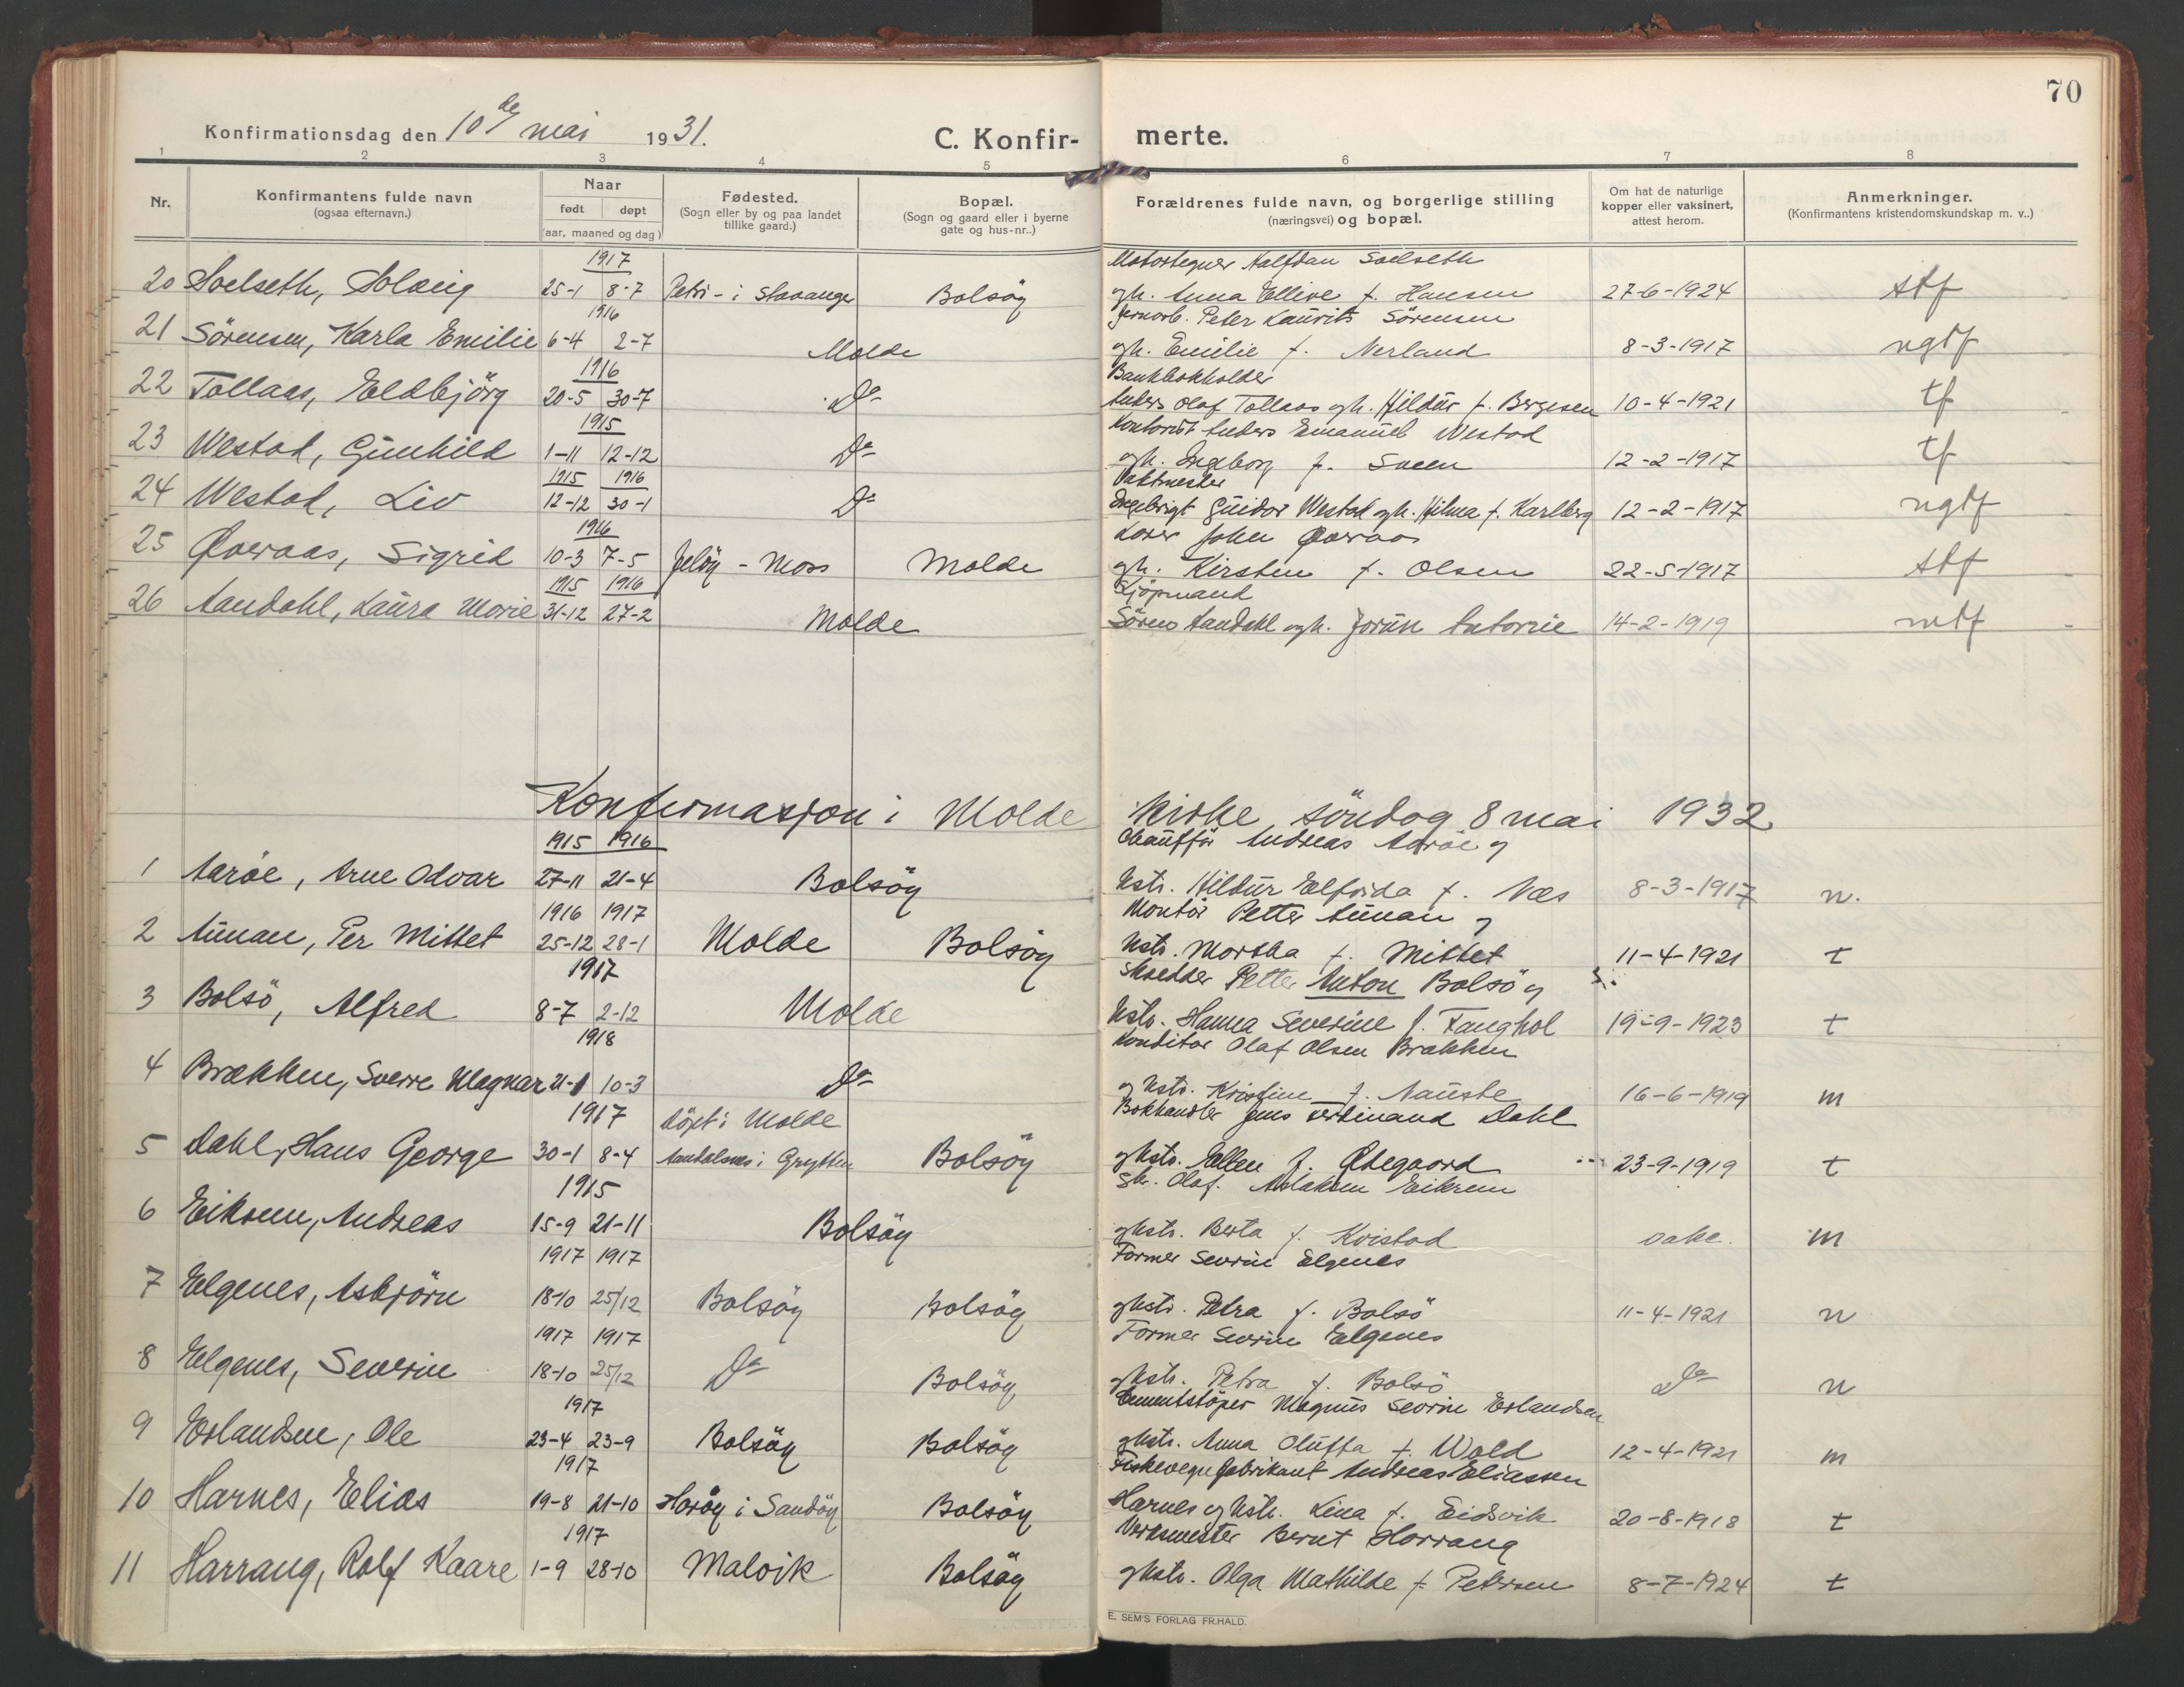 70
Konfirmationsdag den 10de mai 1931.
C. Konfir- merte.
1 2 3 4 5 6 7 8
Nr.
Konfirmantens fulde navn
(ogsaa efternavn.)
Naar
født døpt
(aar, maaned og dag)
Fødested.
(Sogn eller by og paa landet
tillike gaard.)
Bopæl.
(Sogn og gaard eller i byerne
gate og hus-nr..)
Forældrenes fulde navn, og borgerlige stilling
(næringsvei) og bopæl.
Om hat de naturlige
kopper eller vaksinert,
attest herom.
Anmerkninger.
(Konfirmantens kristendomskundskap m. v..)
1917 Halfdan Soelseth
20 Soelseth, Solveig 25-1 8-7 Petri- i Stavanger Bolsöy gh. Anna Elline f. Hansen 27-6-1924 stf
1916 Peter Laurits Sörensen
21 Sörensen, Karla Emilie 6-4 2-7 Molde gh. Emilie f. Nerland 8-3-1917 ngtf
1916 Bankbokholder
22 Tollaas, Eldbjörg 20-5 30-7 Do Anders Olaf Tollaas gh. Hildur f. Bergesen 10-4-1921 tf
1915 Kontorist Anders Emanuel Westad
23 Westad, Gunhild 1-11 12-12 Do gh. Ingeborg f. Sveen 12-2-1917 tf
1915 1916 Vaktmester
24 Westad, Liv 12-12 30-1 Do Ingebrigt Guidor Westad gh. Hilma f. Karlberg 12-2-1917 ngtf
1916 Lærer John Øveraas
25 Øveraas, Sigrid 10-3 7-5 Jelöy - Moss Molde gh. Kirsten f. Olsen 22-5-1917 stf
1915 1916 Kjöpmand
26 Aandahl, Laura Marie 31-12 27-2 Molde Sören Aandahl gh. Jorun Antonie 14-2-1919 mtf
Konfirmasjon i Molde Kirke söndag 8 mai 1932
1915 1916 Chauffør Andreas Aarøe og
1 Aarøe, Arne Odvar 27-11 21-4 Bolsöy Hstr. Hildur Elfrida f. Næs 8-3-1917 n.
1916 1917 Montör Petter Aunan og
2 Aunan, Per Mittet 25-12 28-1 Molde Bolsöy Hstr. Martha f. Mittet 11-4-1921 t
1917 Skredder Petter Anton Bolsö og
3 Bolsö, Alfred 8-7 2-12 Molde Hstr. Hanna Severine f. Fanghol 19-9-1923 t
1918 Konditor Olaf Olsen Brækken
4 Brækken, Sverre Magnar 21-1 10-3 Do og Hstr. Kristine f. Nauste 16-6-1919 m
1917 döpt i Molde Bokhandler Jens Ferdinand Dahl
5 Dahl, Hans George 30-1 8-4 Aandalsnes i Grytten Bolsöy og Hstr. Ellen f. Ødegaard 23-9-1919 t
1915 Olaf Aslaksen Eikrem
6 Eikrem, Andreas 15-9 21-11 Bolsöy og Hstr. Berta f. Kvistad vakc. m
1917 1917 Former Severin Elgenes
7 Elgenes, Asbjörn 18-10 25/12 Bolsöy Bolsöy og Hstr. Petra f. Bolsö 11-4-1921 n
1917 1917 Former Severin Elgenes
8 Elgenes, Severin 18-10 25/12 Do Bolsöy og Hstr. Petra f. Bolsö Do n
1917 Cementstöper Magnus Severin Erlandsen
9 Erlandsen, Ole 23-4 23-9 Bolsöy Bolsöy og Hstr. Anna Oluffa f. Wold 12-4-1921 m
1917 Fiskevegnfabrikant Andreas Eliassen
10 Harnes, Elias 19-8 21-10 Haröy i Sandöy Bolsöy Harnes og Hstr. Lina f. Eidsvik 20-8-1918 t
1917 Verksmester Bernt Harrang
11 Harrang, Rolf Kaare 1-9 28-10 Malvik Bolsöy og Hstr. Olga Mathilde f. Petersen 8-7-1924 t
E. SEM'S FORLAG FR.HALD.